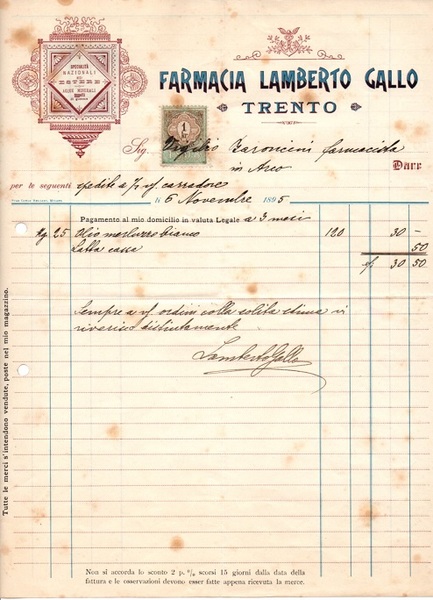 SPECIALITÀ
NAZIONALI
ED
ESTERE
ACQUE MINERALI
FARMACIA LAMBERTO GALLO
TRENTO
1
Sig. Virgilio Zaronini farmacista
in Arco
Dare
per le seguenti spedite a/p vf carradore
li 6 Novembre 1895
Pagamento al mio domicilio in valuta Legale a 3 mesi
Kg 25 Olio merluzzo bianco 120 30 -
Latta cassa 50
f 30 50
Sempre a vf ordini colla solita stima vi
riverisco distintamente
Lamberto Gallo
Tutte le merci s'intendono vendute, poste nel mio magazzino.
Non si accorda lo sconto 2 p. % scorsi 15 giorni dalla data della
fattura e le osservazioni devono esser fatte appena ricevuta la merce.